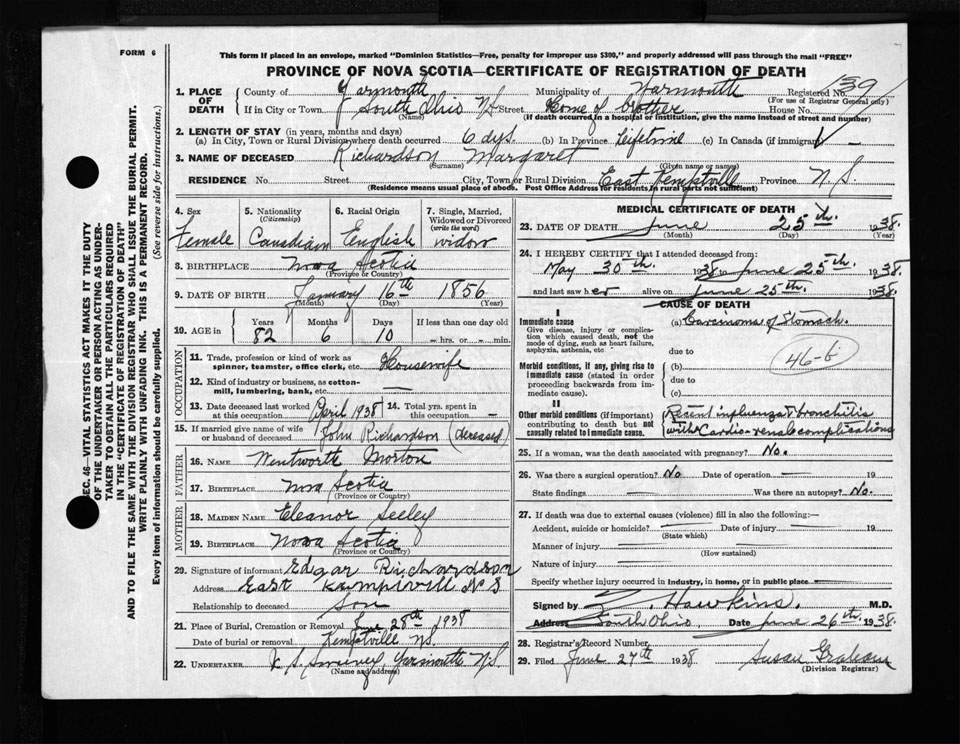 FORM 6
This form if placed in an envelope, marked "Dominion Statistics—Free, penalty for improper use $300," and properly addressed will pass through the mail "FREE"
PROVINCE OF NOVA SCOTIA—CERTIFICATE OF REGISTRATION OF DEATH
SEC. 46—VITAL STATISTICS ACT MAKES IT THE DUTY
OF THE UNDERTAKER OR PERSON ACTING AS UNDER-
TAKER TO OBTAIN ALL THE PARTICULARS REQUIRED
IN THE "CERTIFICATE OF REGISTRATION OF DEATH"
AND TO FILE THE SAME WITH THE DIVISION REGISTRAR WHO SHALL ISSUE THE BURIAL PERMIT.
WRITE PLAINLY WITH UNFADING INK. THIS IS A PERMANENT RECORD.
Every item of information should be carefully supplied. (See reverse side for instructions.)
1. PLACE OF DEATH
County of Yarmouth Municipality of Yarmouth Registered No. 139
(For use of Registrar General only)
If in City or Town South Ohio NS Street Home of brother House No.
(Name) (If death occurred in a hospital or institution, give the name instead of street and number)
2. LENGTH OF STAY (in years, months and days)
(a) In City, Town or Rural Division where death occurred 6 dys. (b) In Province Lifetime (c) In Canada (if immigrant) —
3. NAME OF DECEASED Richardson Margaret
(Surname) (Given name or names)
RESIDENCE No. Street City, Town or Rural Division East Kemptville Province N.S.
(Residence means usual place of abode. Post Office Address for residents in rural parts not sufficient)
4. Sex
Female
5. Nationality
(Citizenship)
Canadian
6. Racial Origin
English
7. Single, Married,
Widowed or Divorced
(write the word)
widow
8. BIRTHPLACE Nova Scotia
(Province or Country)
9. DATE OF BIRTH January 16th 1856
(Month) (Day) (Year)
10. AGE in
Years Months Days If less than one day old
82 6 10 — hrs. or — min.
OCCUPATION
11. Trade, profession or kind of work as
spinner, teamster, office clerk, etc. Housewife
12. Kind of industry or business, as cotton-
mill, lumbering, bank, etc. —
13. Date deceased last worked
at this occupation April 1938
14. Total yrs. spent in
this occupation —
15. If married give name of wife
or husband of deceased John Richardson (deceased)
FATHER
16. NAME Wentworth Morton
17. BIRTHPLACE Nova Scotia
(Province or Country)
MOTHER
18. MAIDEN NAME Eleanor Seeley
19. BIRTHPLACE Nova Scotia
(Province or Country)
20. Signature of informant Edgar Richardson
Address East Kempivill N S
Relationship to deceased Son
21. Place of Burial, Cremation or Removal June 28th 1938
Date of burial or removal Kemptville NS.
22. UNDERTAKER Sweeney, Yarmouth NS
(Name and address)
MEDICAL CERTIFICATE OF DEATH
23. DATE OF DEATH June 25th 1938.
(Month) (Day) (Year)
24. I HEREBY CERTIFY that I attended deceased from:
May 30th 1938 to June 25th 1938.
and last saw her alive on June 25th. 1938.
CAUSE OF DEATH
I
Immediate cause (a) Carcinoma of Stomach.
Give disease, injury or complica-
tion which caused death, not the
mode of dying, such as heart failure,
asphyxia, asthenia, etc.
due to
46-b
Morbid conditions, if any, giving rise to
immediate cause (stated in order
proceeding backwards from im-
mediate cause).
(b)
due to
(c)
II
Other morbid conditions (if important)
contributing to death but not
causally related to immediate cause.
Recent influenza & bronchitis
with Cardio-renal complications
25. If a woman, was the death associated with pregnancy? No.
26. Was there a surgical operation? No Date of operation — 19
State findings — Was there an autopsy? No.
27. If death was due to external causes (violence) fill in also the following:—
Accident, suicide or homicide? — Date of injury — 19
(State which)
Manner of injury —
(How sustained)
Nature of injury —
Specify whether injury occurred in industry, in home, or in public place —
Signed by Hawkins. M.D.
Address South Ohio, Date June 26th. 1938.
28. Registrar's Record Number
29. Filed June 27th 1938 Susan Graham
(Division Registrar)